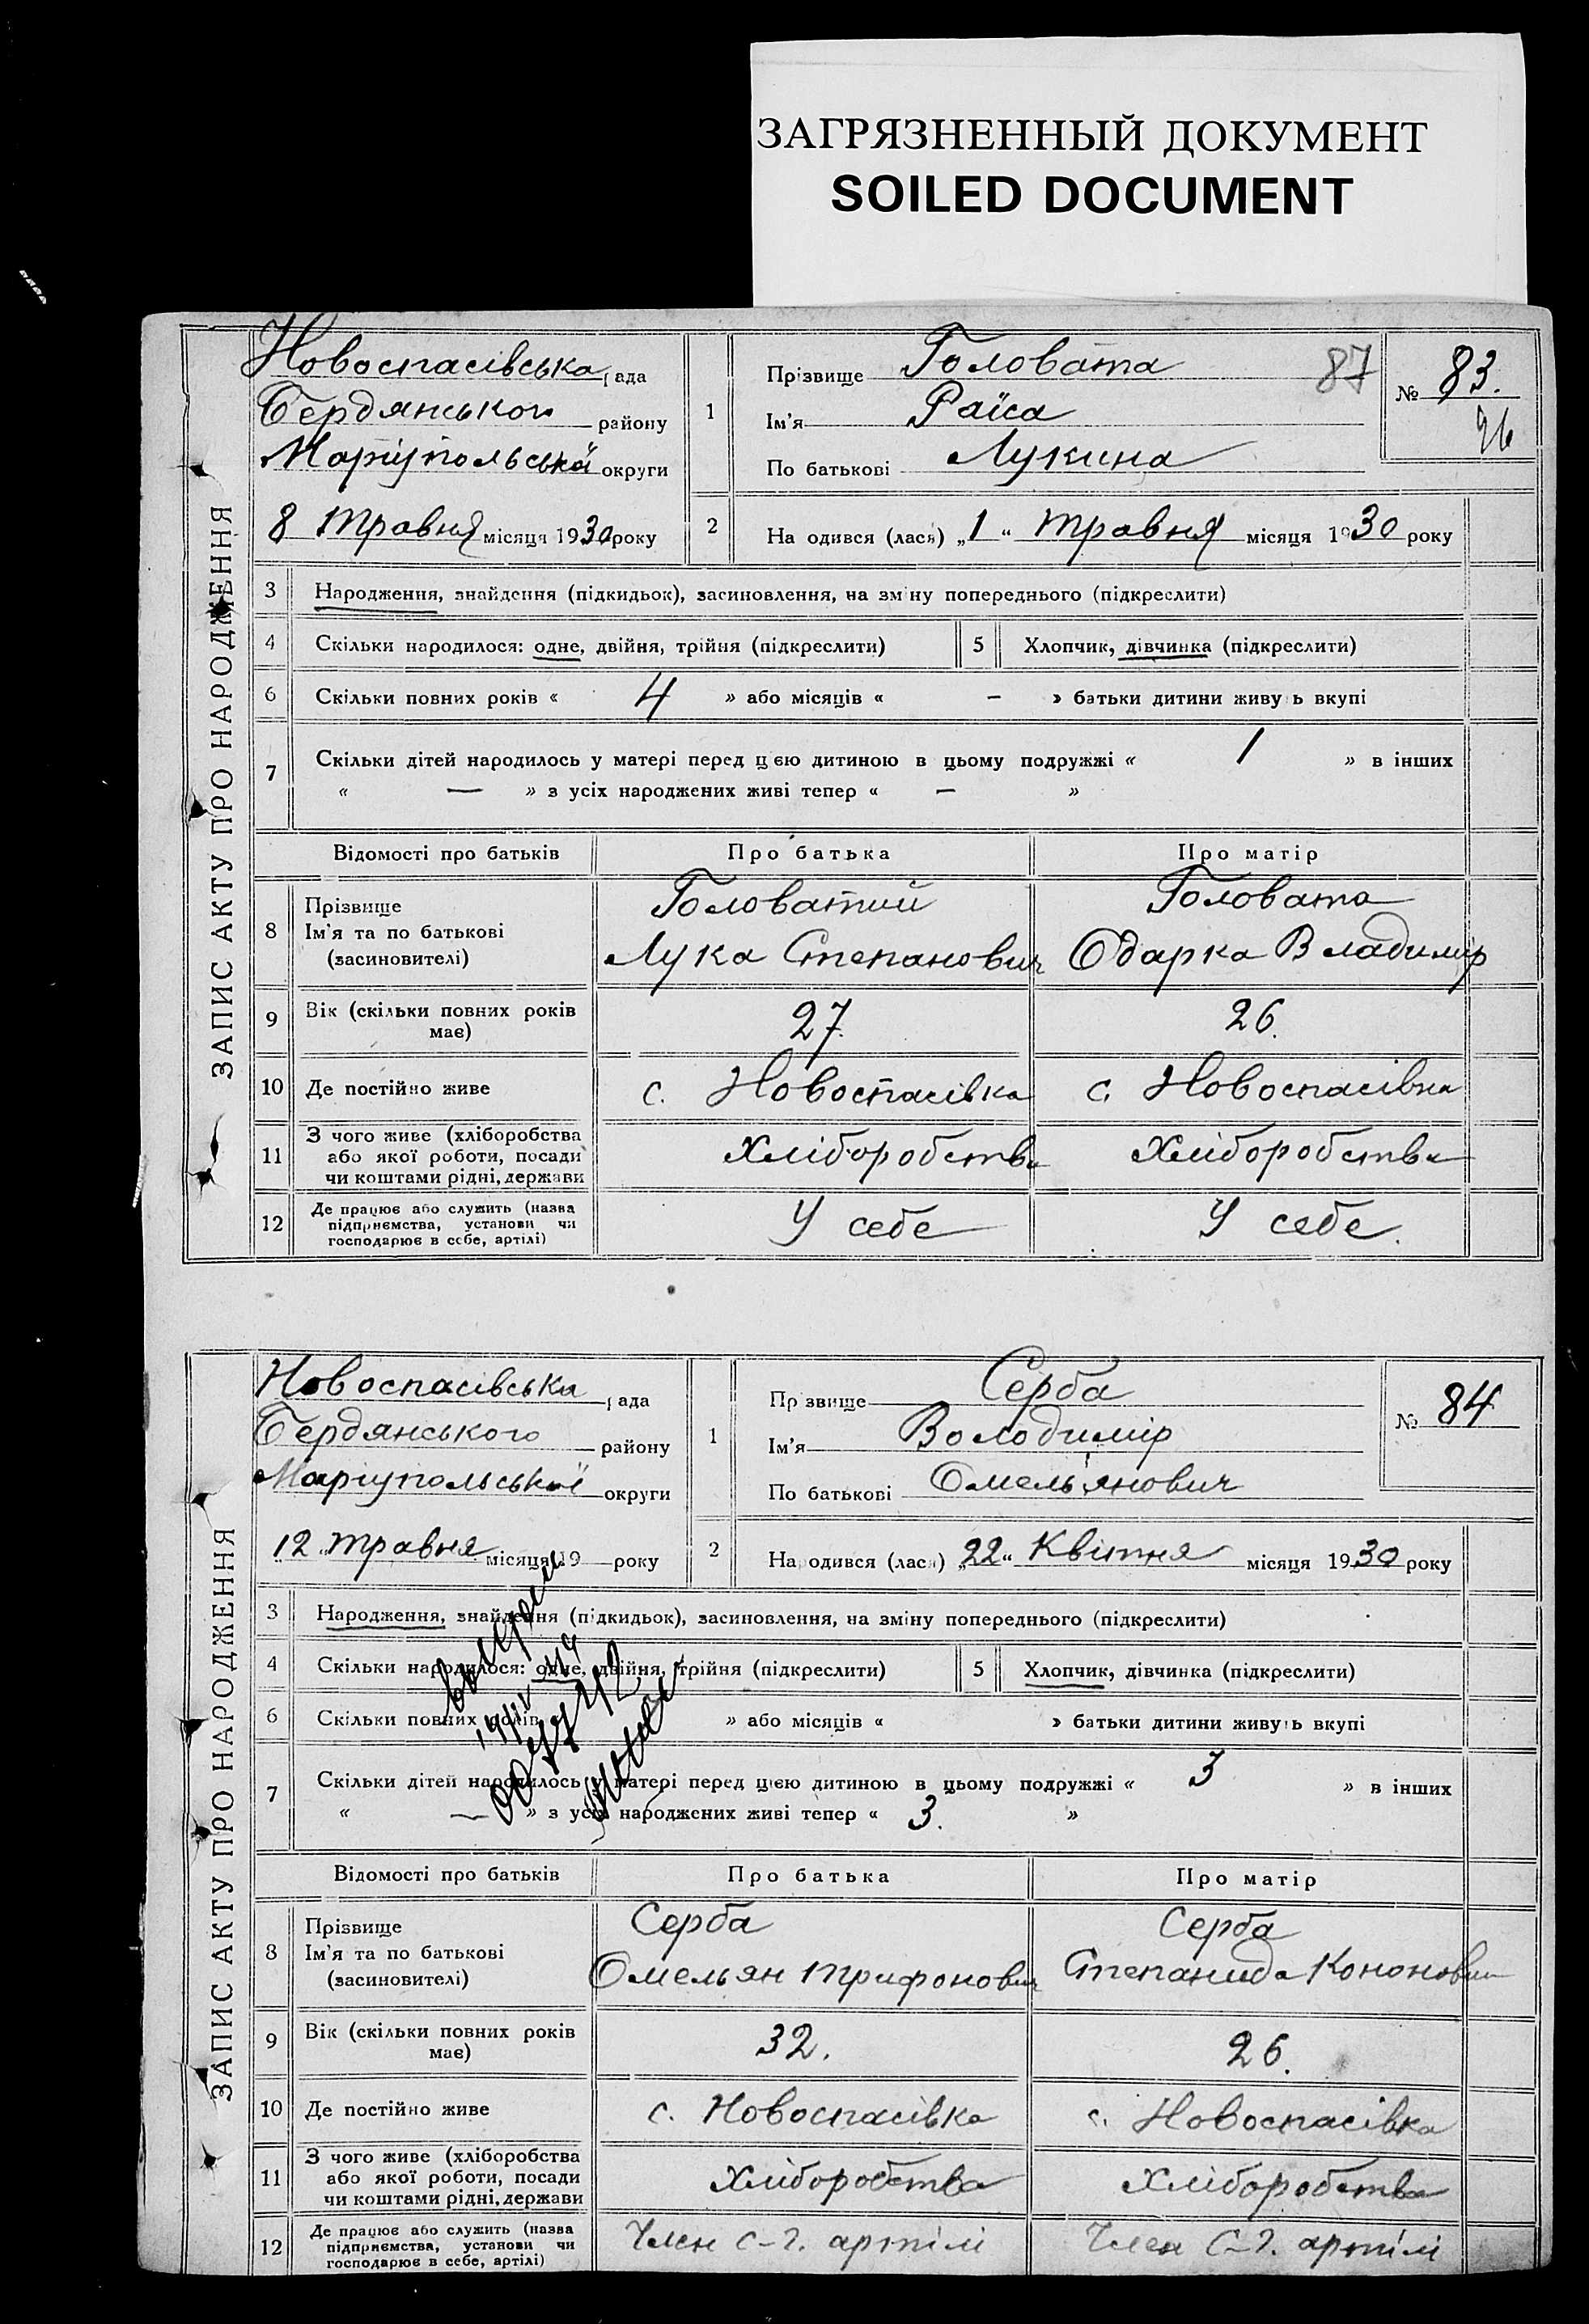 ЗАГРЯЗНЕННЫЙ ДОКУМЕНТ
SOILED DOCUMENT
ЗАПИС АКТУ ПРО НАРОДЖЕННЯ
Новоспасівська рада
Бердянського району
Маріупольської округи
8 травня місяця 1930 року
1
Прізвище Головата
87
№ 83.
Ім'я Раїса
26
По батькові Лукина
2
На одився (лася) „1“ травня місяця 1930 року
3 Народження, знайдення (підкидьок), засиновлення, на зміну попереднього (підкреслити)
4 Скільки народилося: одне, двійня, трійня (підкреслити) 5 Хлопчик, дівчинка (підкреслити)
6 Скільки повних років « 4 » або місяців « – » батьки дитини живуть вкупі
7 Скільки дітей народилось у матері перед цією дитиною в цьому подружжі « 1 » в інших
« — » з усіх народжених живі тепер « – »
Відомості про батьків Про батька Про матір
8 Прізвище Ім'я та по батькові (засиновителі)
Головатий Головата
Лука Степанович Одарка Владимір
9 Вік (скільки повних років має) 27. 26.
10 Де постійно живе с. Новоспасівка с. Новоспасівка
11 З чого живе (хліборобства або якої роботи, посади чи коштами рідні, держави Хліборобства Хліборобства
12 Де працює або служить (назва підприємства, установи чи господарює в себе, артілі) У себе У себе.
ЗАПИС АКТУ ПРО НАРОДЖЕННЯ
Новоспасівська рада
Бердянського району
Маріупольської округи
12 травня місяця 19 — року
1
Пр звище Серба
№ 84
Ім'я Володимір
По батькові Омель'янович
2
На одився (лася) „22“ Квітня місяця 1930 року
3 Народження, знайдення (підкидьок), засиновлення, на зміну попереднього (підкреслити)
4 Скільки народилося: одне, двійня, трійня (підкреслити) 5 Хлопчик, дівчинка (підкреслити)
6 Скільки повних років « » або місяців « » батьки дитини живуть вкупі
7 Скільки дітей народилось у матері перед цією дитиною в цьому подружжі « 3 » в інших
« — » з усіх народжених живі тепер « 3. »
Відомості про батьків Про батька Про матір
8 Прізвище Ім'я та по батькові (засиновителі)
Серба Серба
Омельян Трифонович Степанида Кононович
9 Вік (скільки повних років має) 32. 26.
10 Де постійно живе с. Новоспасівка с. Новоспасівка
11 З чого живе (хліборобства або якої роботи, посади чи коштами рідні, держави Хліборобства Хліборобства
12 Де працює або служить (назва підприємства, установи чи господарює в себе, артілі) Член с-г. артілі Член с-г. артілі